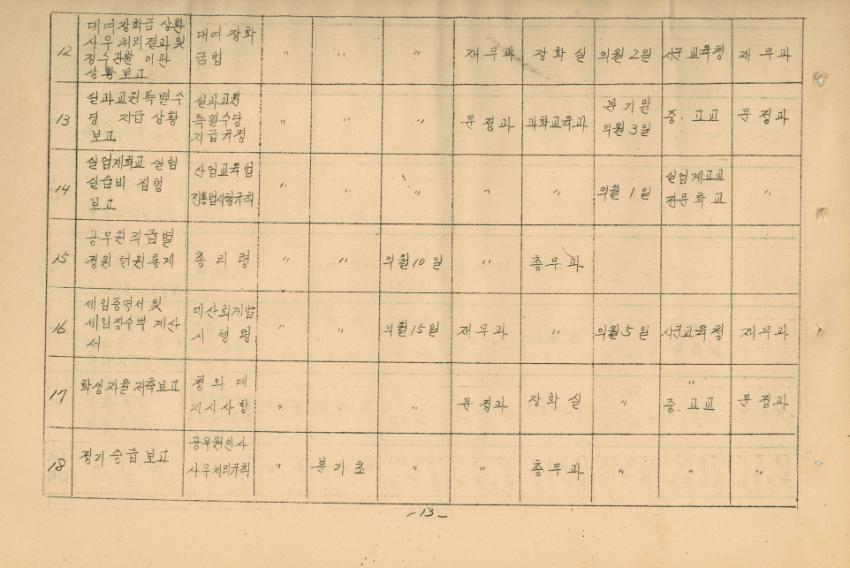 12 대여장학금 상환 사무처리결과 및 징수관할 이관 상황보고 대여 장학금법 〃 〃 〃 재무과 장학실 의월 2일 시군교육청 재무과
13 실과교원특별수당 지급 상황 보고 실과교원 특별수당 지급규정 〃 〃 〃 문정과 과학교육과 분기말 의월 3일 중.고교 문정과
14 실업계학교 실험 실습비 집행 보고 산업교육법 진흥법시행규칙 〃 〃 〃 〃 〃 의월 1일 실업계고교 전문학교 〃
15 공무원직급별 정원 현원통계 총리령 〃 〃 의월 10일 〃 총무과
16 세입증명서 및 세입징수액 계산서 예산회계법 시행령 〃 〃 의월 15일 재무과 〃 의월 5일 시군교육청 재무과
17 학생자율저축보고 지시사항 〃 〃 〃 문정과 장학실 〃 〃 중.고교 문정과
18 정기승급보고 공무원인사 사무처리규칙 〃 분기초 〃 〃 총무과 〃 〃 〃
-13-